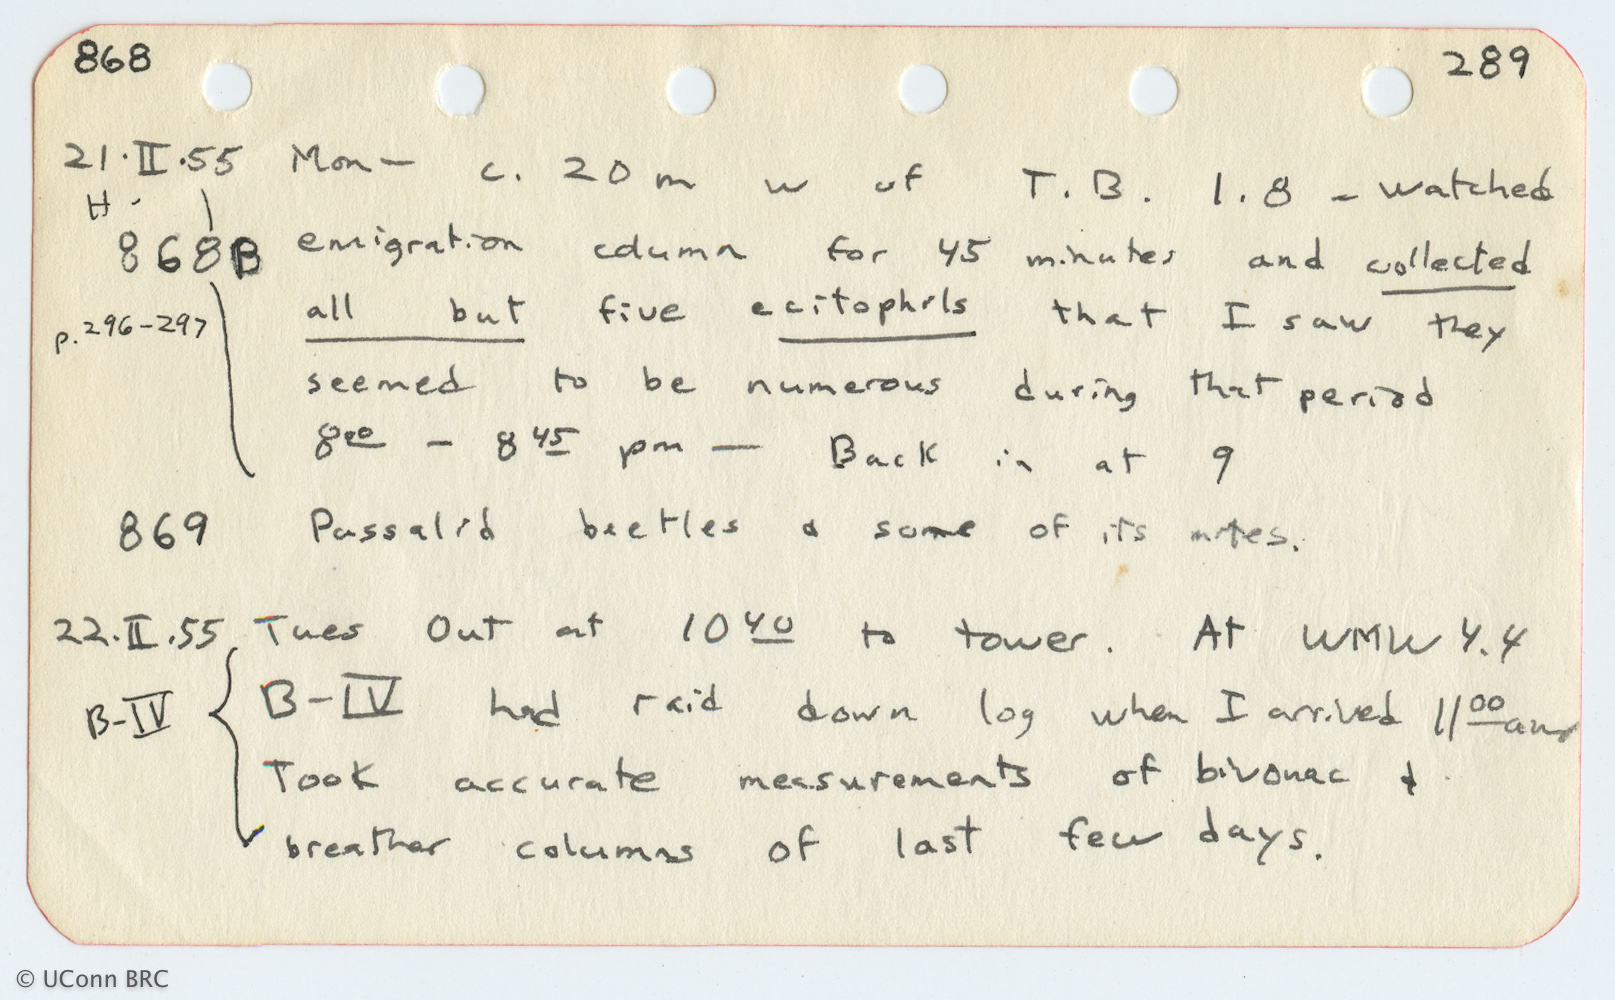 868 289
21·II·55 Mon— c. 20 m w of T.B. 1.8 – watched
H-
868B emigration column for 45 minutes and collected
p. 296-297 all but five ecitophils that I saw they
seemed to be numerous during that period
8 00 – 8 45 pm — Back in at 9
869 Passalid beetles & some of its mites.
22·II·55 Tues Out at 10 40 to tower. At WMW 4.4
B-IV B-IV had raid down log when I arrived 11 00 am
Took accurate measurements of bivouac &
breather columns of last few days.
© UConn BRC